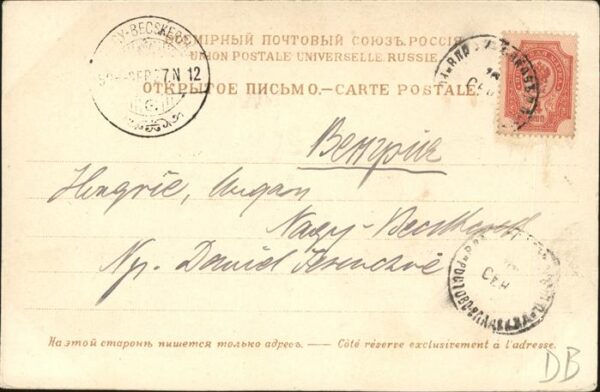 ВСЕМІРНЫЙ ПОЧТОВЫЙ СОЮЗЪ. РОССІЯ
UNION POSTALE UNIVERSELLE. RUSSIE
ОТКРЫТОЕ ПИСЬМО.—CARTE POSTALE.
NAGY-BECSKEREK
SEP. 27. N 12
Венгрія
Hongrie, Ungarn
Nagy-Becskerek
Daniel
РОСТОВО-ВЛАДИКАВ.
На этой сторонѣ пишется только адресъ. — Côté réservé exclusivement à l'adresse.
DB